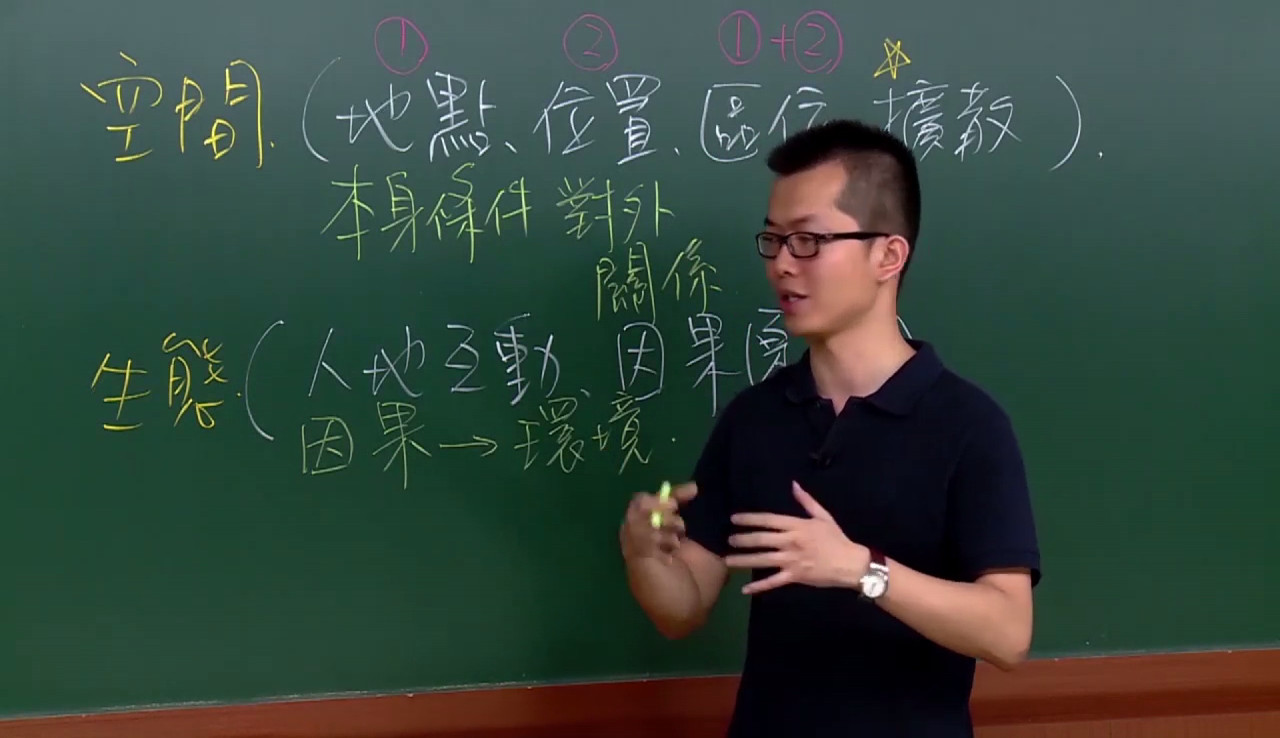 ① ② ①+② ☆
空間.(地點、位置、區位 擴散).
本身條件 對外
關係
生態.(人地互動、因果
因果→環境.